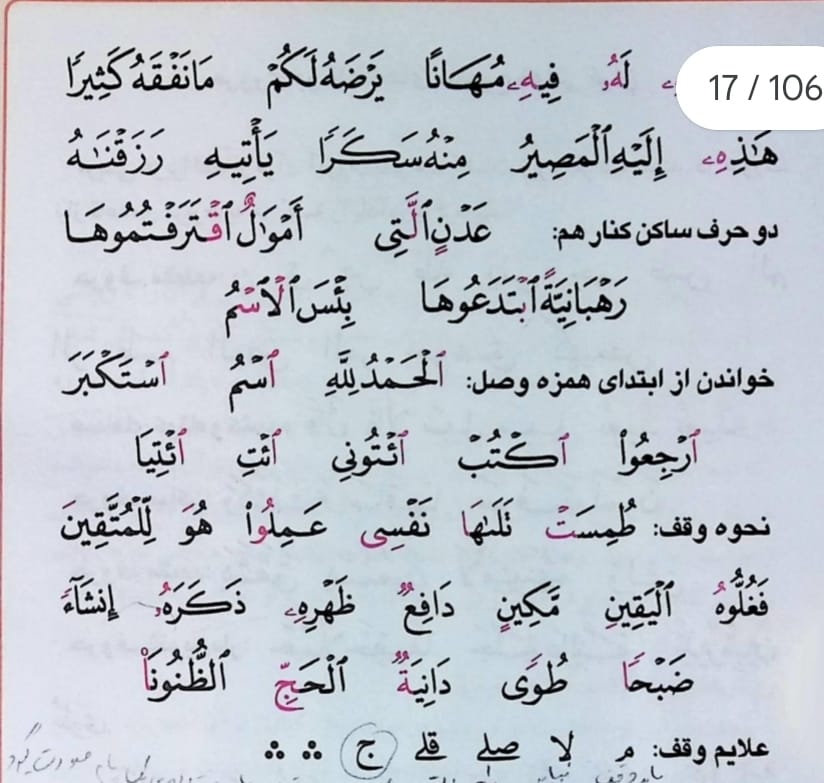 17 / 106
لَهُۥ فِيهِۦ مُهَانًا يَرْضَهُ لَكُمْ مَا نَفْقَهُ كَثِيرًا
هَٰذِهِۦ إِلَيْهِ ٱلْمَصِيرُ مِنْهُ سَكَرًا يَأْتِيهِ رَزَقْنَٰهُ
دو حرف ساکن کنار هم: عَدْنٍ ٱلَّتِى أَمْوَٰلٌ ٱقْتَرَفْتُمُوهَا
رَهْبَانِيَّةً ٱبْتَدَعُوهَا بِئْسَ ٱلْاسْمُ
خواندن از ابتدای همزه وصل: ٱلْحَمْدُ لِلَّهِ ٱسْمُ ٱسْتَكْبَرَ
ٱرْجِعُوا۟ ٱكْتُبْ ٱئْتُونِى ٱئْتِ ٱئْتِيَا
نحوه وقف: طُمِسَتْ تَلَىٰهَا نَفْسِى عَمِلُوا۟ هُوَ لِّلْمُتَّقِينَ
فَغُلُّوهُ ٱلْيَقِينِ مَّكِينٍ دَافِعٌ ظَهْرِهِۦ ذَكَرَهُۥ إِنشَآءً
ضَبْحًا طُوًى دَانِيَةٌ ٱلْحَجِّ ٱلظُّنُونَا۠
علایم وقف: م لا صلے قلے ج ∴ ∴